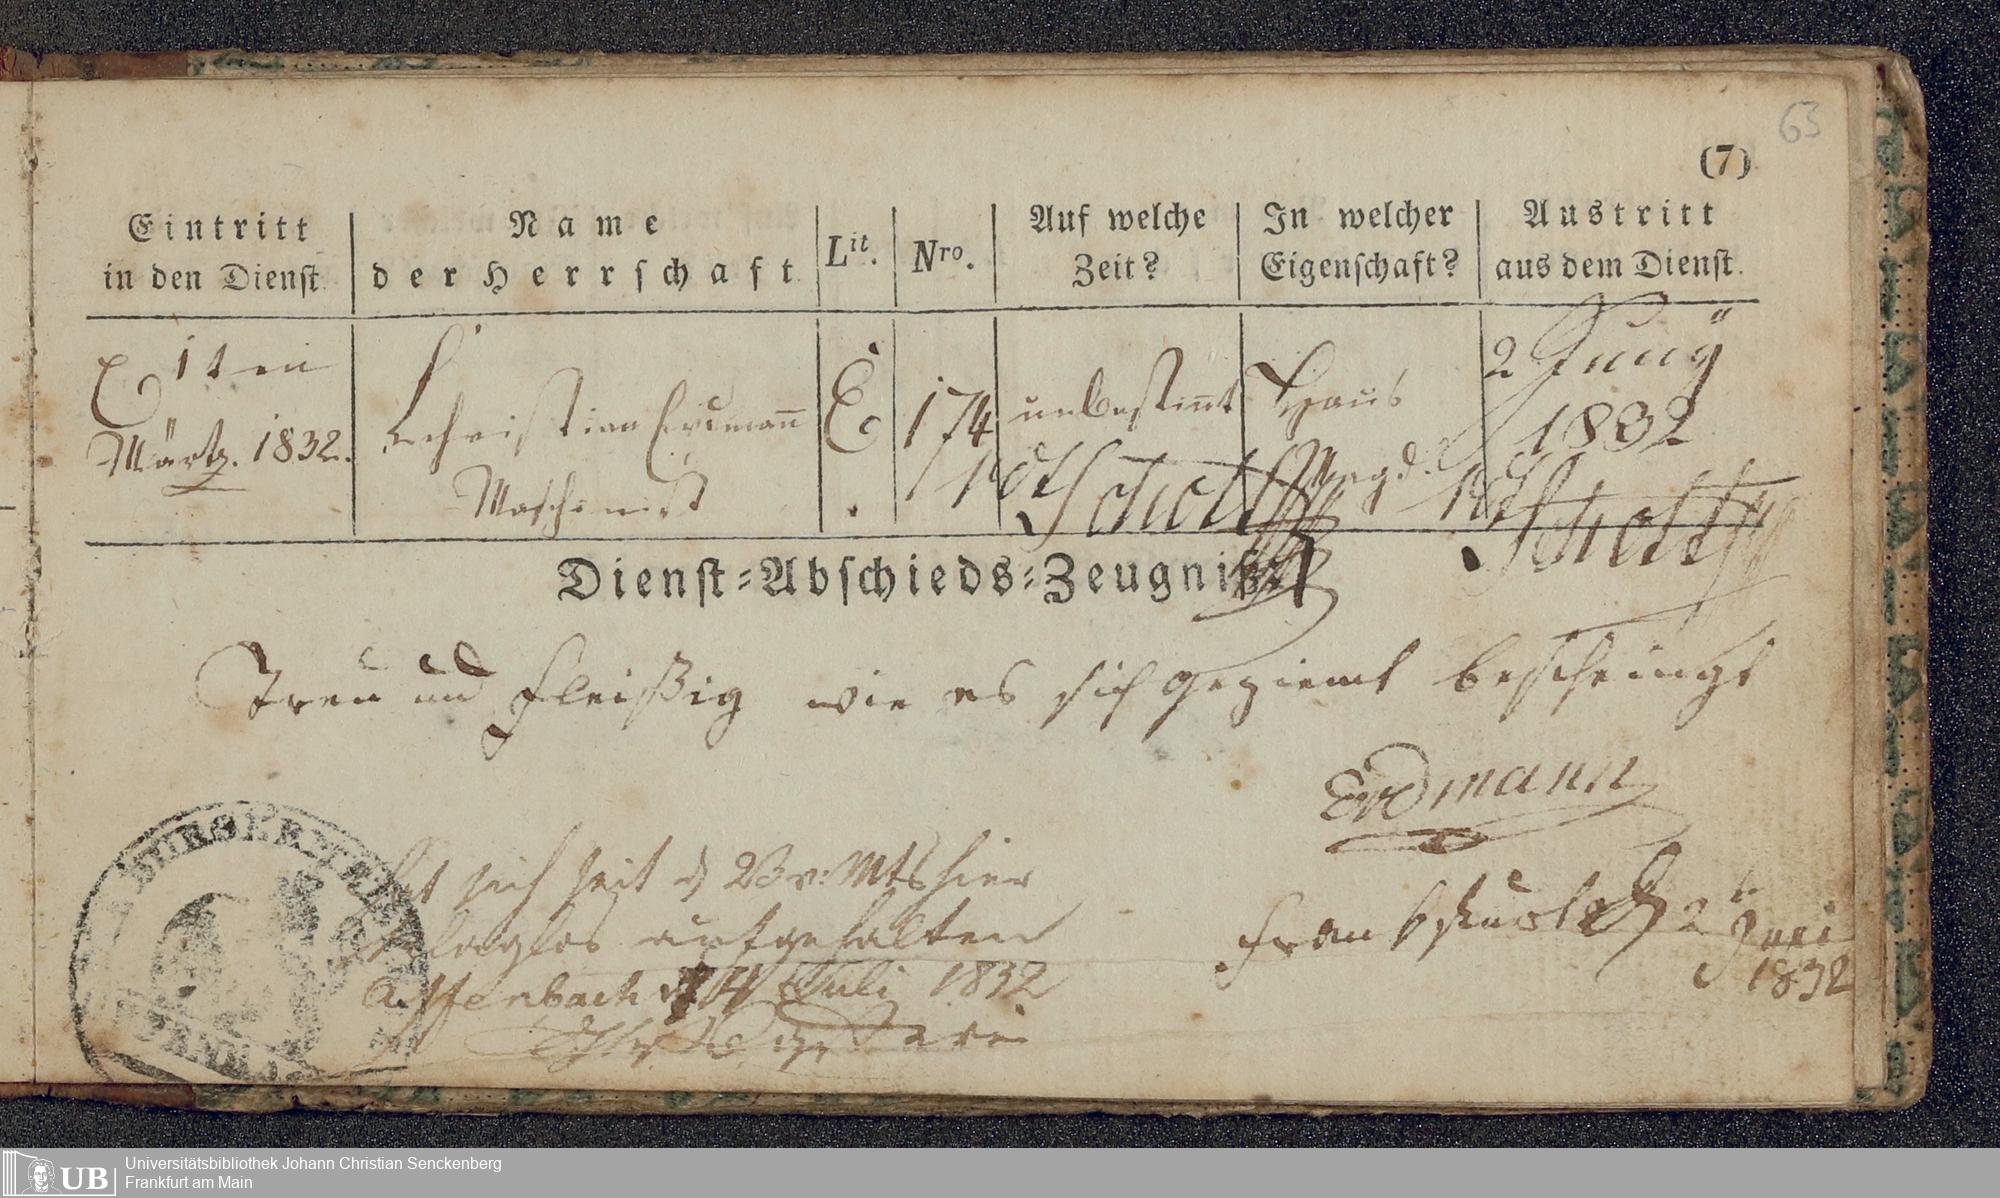 63
(7)
Eintritt in den Dienst
Name der Herrschaft
Lit.
Nro.
Auf welche Zeit?
In welcher Eigenschaft?
Austritt aus dem Dienst.
1ten
Märtz. 1832.
Christian Erdmann
Maschinist
E.
174
unbestimt
Haus
Magd
2 Juny
1832
Dienst-Abschieds-Zeugniß.
Treu und fleißig wie es sich geziemt bescheingt
Erdmann
Hat sich seit d 23 v: Mts hier
klaglos aufgehalten
Offenbach d 14 Juli 1832
2t Juni
1832
Universitätsbibliothek Johann Christian Senckenberg
Frankfurt am Main
UB